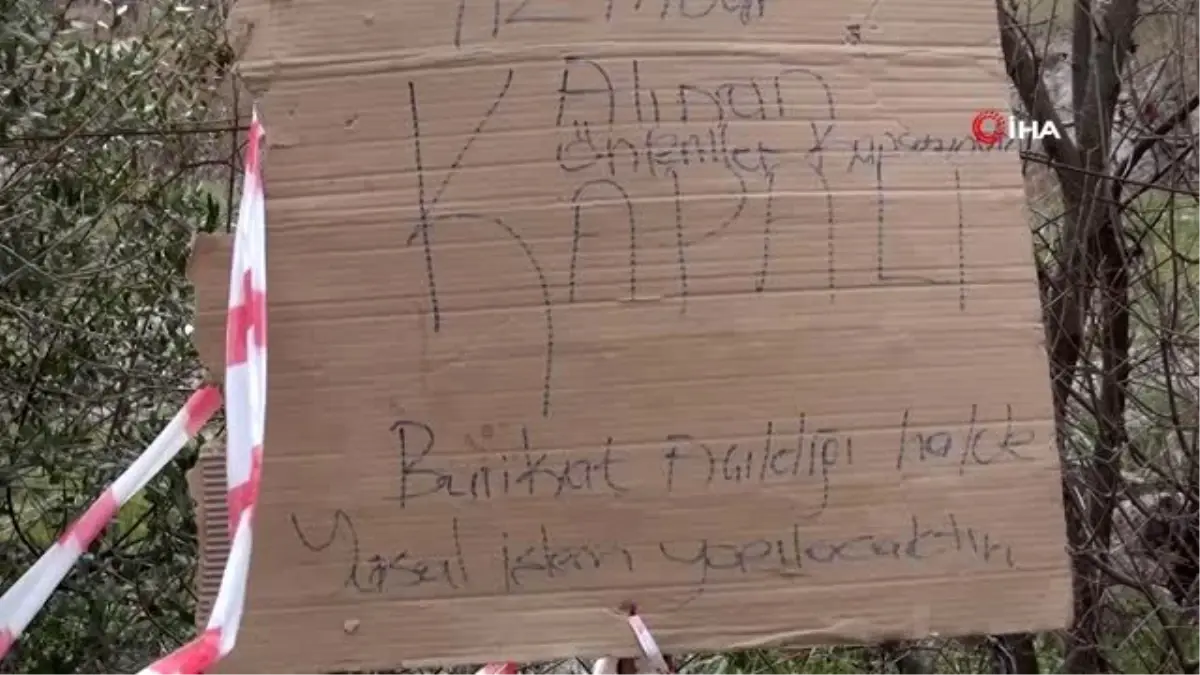 Alınan
İHA
önlemler Kapsamında
KAPALI
Barikat Açıldığı halde
Yasal işlem yapılacaktır